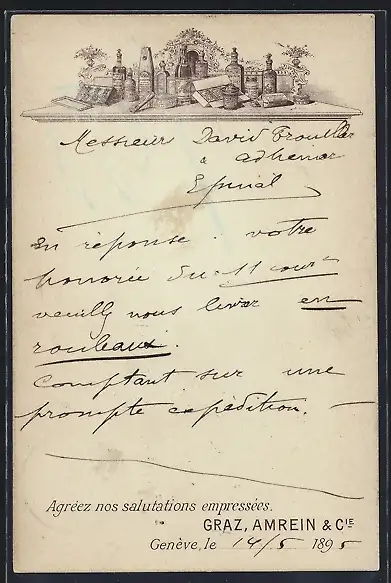 Messieur David Trouillet
à adhémar
Epinal
En réponse à votre
honorée du 11 cour
veuillz nous livrer en
rouleaux.
Comptant sur une
prompte expédition. —
Agréez nos salutations empressées.
GRAZ, AMREIN & CIE
Genève, le 14/5 1895